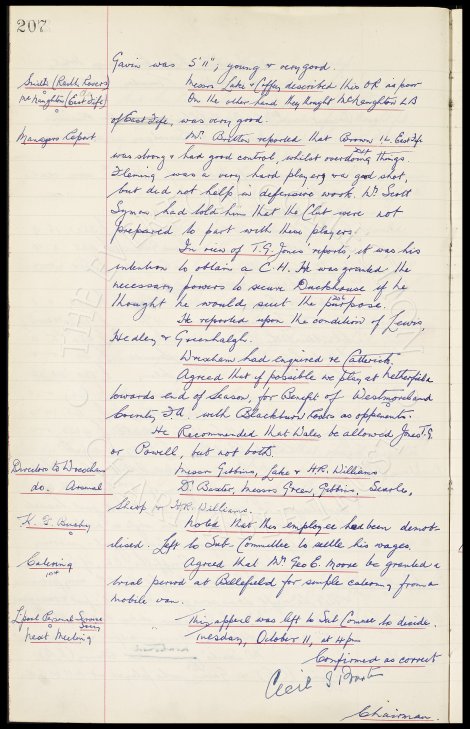 207
Gavin was 5'11", young & very good.
Smith (Raith Rovers)
Messrs Lake & Coffey described this OR as poor
McNaughton (East Fife)
On the other hand they thought McNaughton LB
of East Fife, was very good.
Managers Report
Mr. Buxton reported that Brown I.L. East Fife
was strong & had good control, whilst overdoing things.
Fleming was a very hard player & a good shot,
but did not help in defensive work. Mr Scott
Symon, had told him that the Club were not
prepared to part with these players
In view of T.G. Jones' reports, it was his
intention to obtain a C.H. He was granted the
necessary powers to secure Duckhouse if he
thought he would suit the purpose.
He reported upon the condition of Lewis,
Hedley & Greenhalgh.
Wrexham had enquired re Catterick
Agreed that if possible we play at Netherfield
towards end of Season, for Benefit of Westmoreland
County F.A. with Blackburn Rovers as opponents.
He Recommended that Wales be allowed Jones T.G.
or Powell, but not both.
Directors to Wrexham
Messrs Gibbins, Lake & H.R. Williams
do. Arsenal
Dr. Baxter, Messrs Green, Gibbins, Searle,
Sharp or H.R. Williams.
Noted that this employee had been demob-
ilised. Left to Sub. Committee to settle his wages.
Catering
Agreed that Mr Geo E. Moore be granted a
trial period at Bellefield for simple catering from a
mobile van.
L'pool Personal Service
Socy
This appeal was left to Sub Comee to decide.
Next Meeting
Tuesday, October 11, at 4pm
Confirmed as correct
Cecil S Baxter
Chairman.